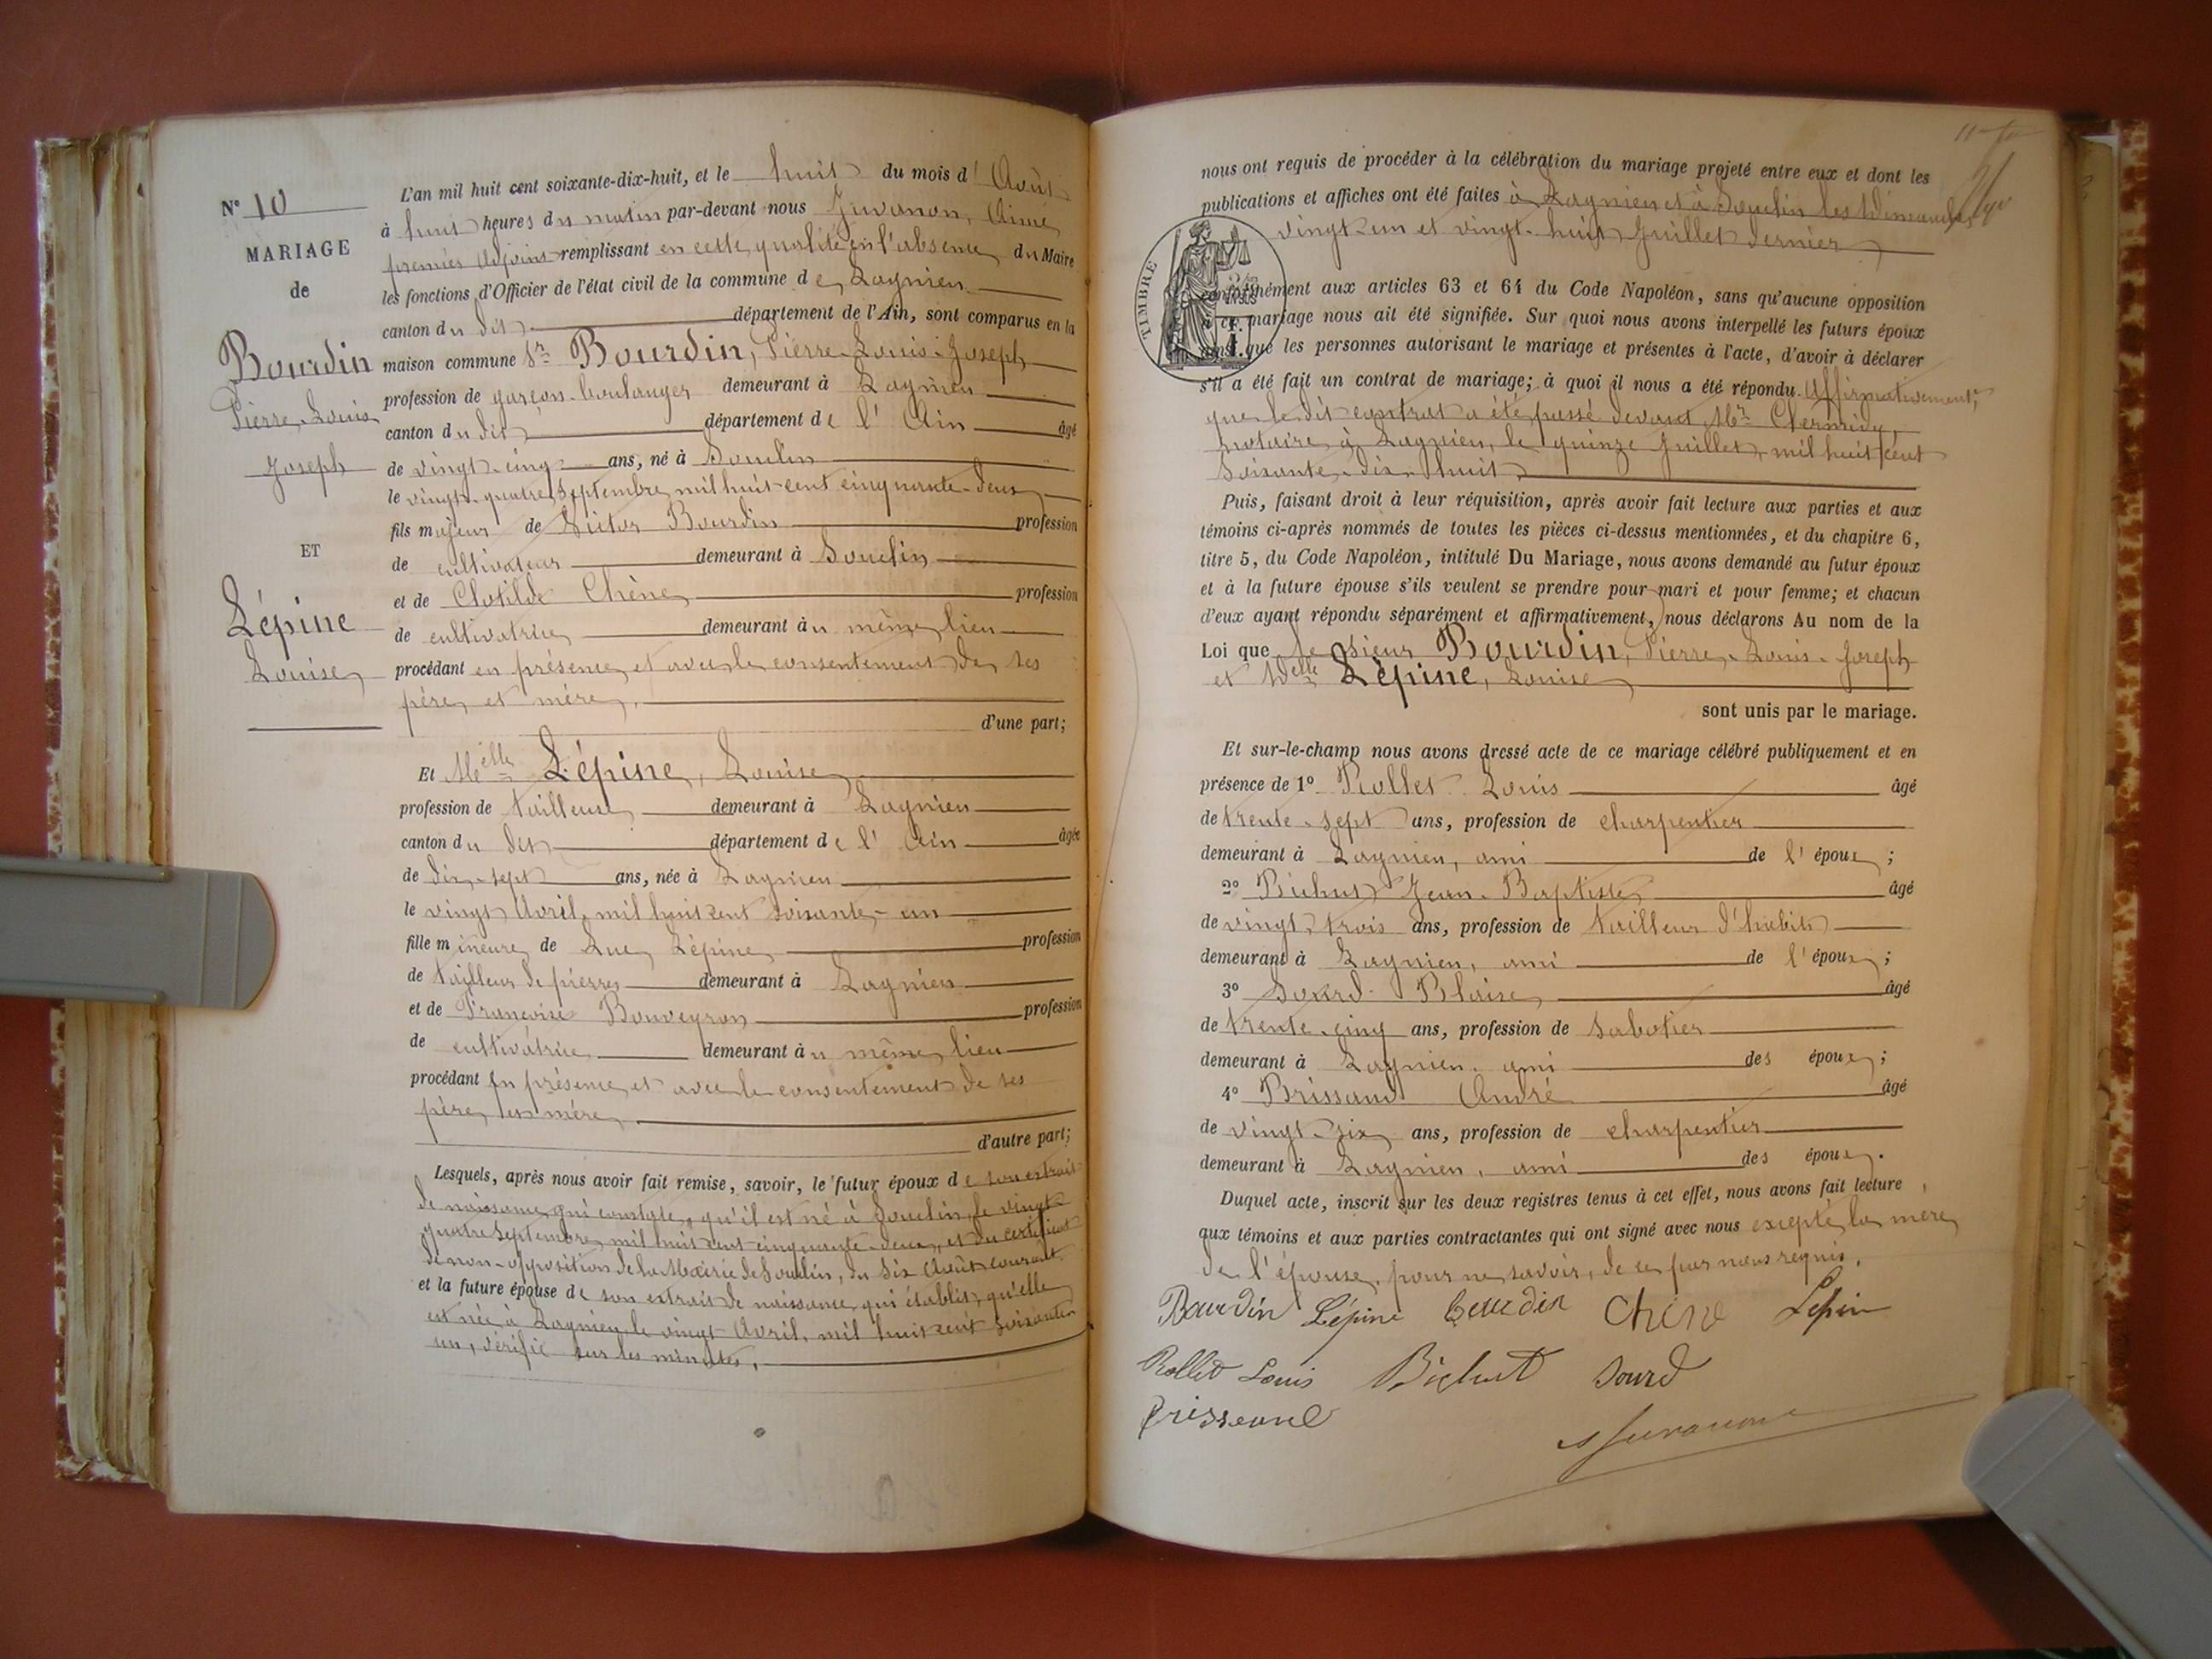 N° 10
MARIAGE
de
Bourdin
Pierre-Louis
Joseph
ET
Lépine
Louise
L'an mil huit cent soixante-dix-huit, et le huit du mois d'Août
à huit heures du matin par-devant nous Juvanon, Aimé
premier Adjoint remplissant en cette qualité en l'absence du Maire
les fonctions d'Officier de l'état civil de la commune de Lagnieu
canton du dit département de l'Ain, sont comparus en la
maison commune Sr Bourdin, Pierre-Louis-Joseph
profession de garçon-boulanger demeurant à Lagnieu
canton du dit département de l'Ain âgé
de vingt-cinq ans, né à Souclin
le vingt-quatre Septembre mil huit-cent cinquante-deux
fils majeur de Victor Bourdin profession
de cultivateur demeurant à Souclin
et de Clotilde Chêne profession
de cultivatrice demeurant au même lieu
procédant en présence et avec le consentement de ses
père et mère,
d'une part;
Et Melle Lépine, Louise
profession de tailleuse demeurant à Lagnieu
canton du dit département de l'Ain âgée
de dix-sept ans, née à Lagnieu
le vingt Avril mil huit cent soixante-un
fille mineure de Luc Lépine profession
de tailleur de pierres demeurant à Lagnieu
et de Françoise Bouveyron profession
de cultivatrice demeurant au même lieu
procédant en présence et avec le consentement de ses
père et mère
d'autre part;
Lesquels, après nous avoir fait remise, savoir, le futur époux de son extrait
de naissance qui constate qu'il est né à Souclin le vingt-
quatre Septembre mil huit cent cinquante-deux, et du certificat
de non-opposition de la Mairie de Souclin, du Six Août courant.
et la future épouse de son extrait de naissance qui établit qu'elle
est née à Lagnieu le vingt Avril mil huit cent soixante-
un, vérifié sur les minutes,
nous ont requis de procéder à la célébration du mariage projeté entre eux et dont les
publications et affiches ont été faites à Lagnieu et à Souclin les Dimanches
vingt-un et vingt-huit Juillet dernier
TIMBRE
conformément aux articles 63 et 64 du Code Napoléon, sans qu'aucune opposition
à ce mariage nous ait été signifiée. Sur quoi nous avons interpellé les futurs époux
ainsi que les personnes autorisant le mariage et présentes à l'acte, d'avoir à déclarer
s'il a été fait un contrat de mariage; à quoi il nous a été répondu Affirmativement,
que le dit contrat a été passé devant Me Chermidy,
notaire à Lagnieu, le quinze Juillet, mil huit cent
soixante-dix-huit
Puis, faisant droit à leur réquisition, après avoir fait lecture aux parties et aux
témoins ci-après nommés de toutes les pièces ci-dessus mentionnées, et du chapitre 6,
titre 5, du Code Napoléon, intitulé Du Mariage, nous avons demandé au futur époux
et à la future épouse s'ils veulent se prendre pour mari et pour femme; et chacun
d'eux ayant répondu séparément et affirmativement, nous déclarons Au nom de la
Loi que le Sieur Bourdin, Pierre-Louis-Joseph
et Delle Lépine, Louise
sont unis par le mariage.
Et sur-le-champ nous avons dressé acte de ce mariage célébré publiquement et en
présence de 1° Rollet Louis âgé
de trente-sept ans, profession de charpentier
demeurant à Lagnieu, ami de l'époux;
2° Bichut Jean-Baptiste âgé
de vingt trois ans, profession de tailleur d'habits
demeurant à Lagnieu, ami de l'époux;
3° Sourd Blaise âgé
de trente-cinq ans, profession de sabotier
demeurant à Lagnieu, ami des époux;
4° Brissaud André âgé
de vingt-six ans, profession de charpentier
demeurant à Lagnieu, ami des époux.
Duquel acte, inscrit sur les deux registres tenus à cet effet, nous avons fait lecture
aux témoins et aux parties contractantes qui ont signé avec nous excepté la mère
de l'épouse, pour ne savoir, de ce par nous requis.
Bourdin Lépine Bourdin Chêne Lépin
Rollet Louis Bichut Sourd
Brissaud
A Juvanon